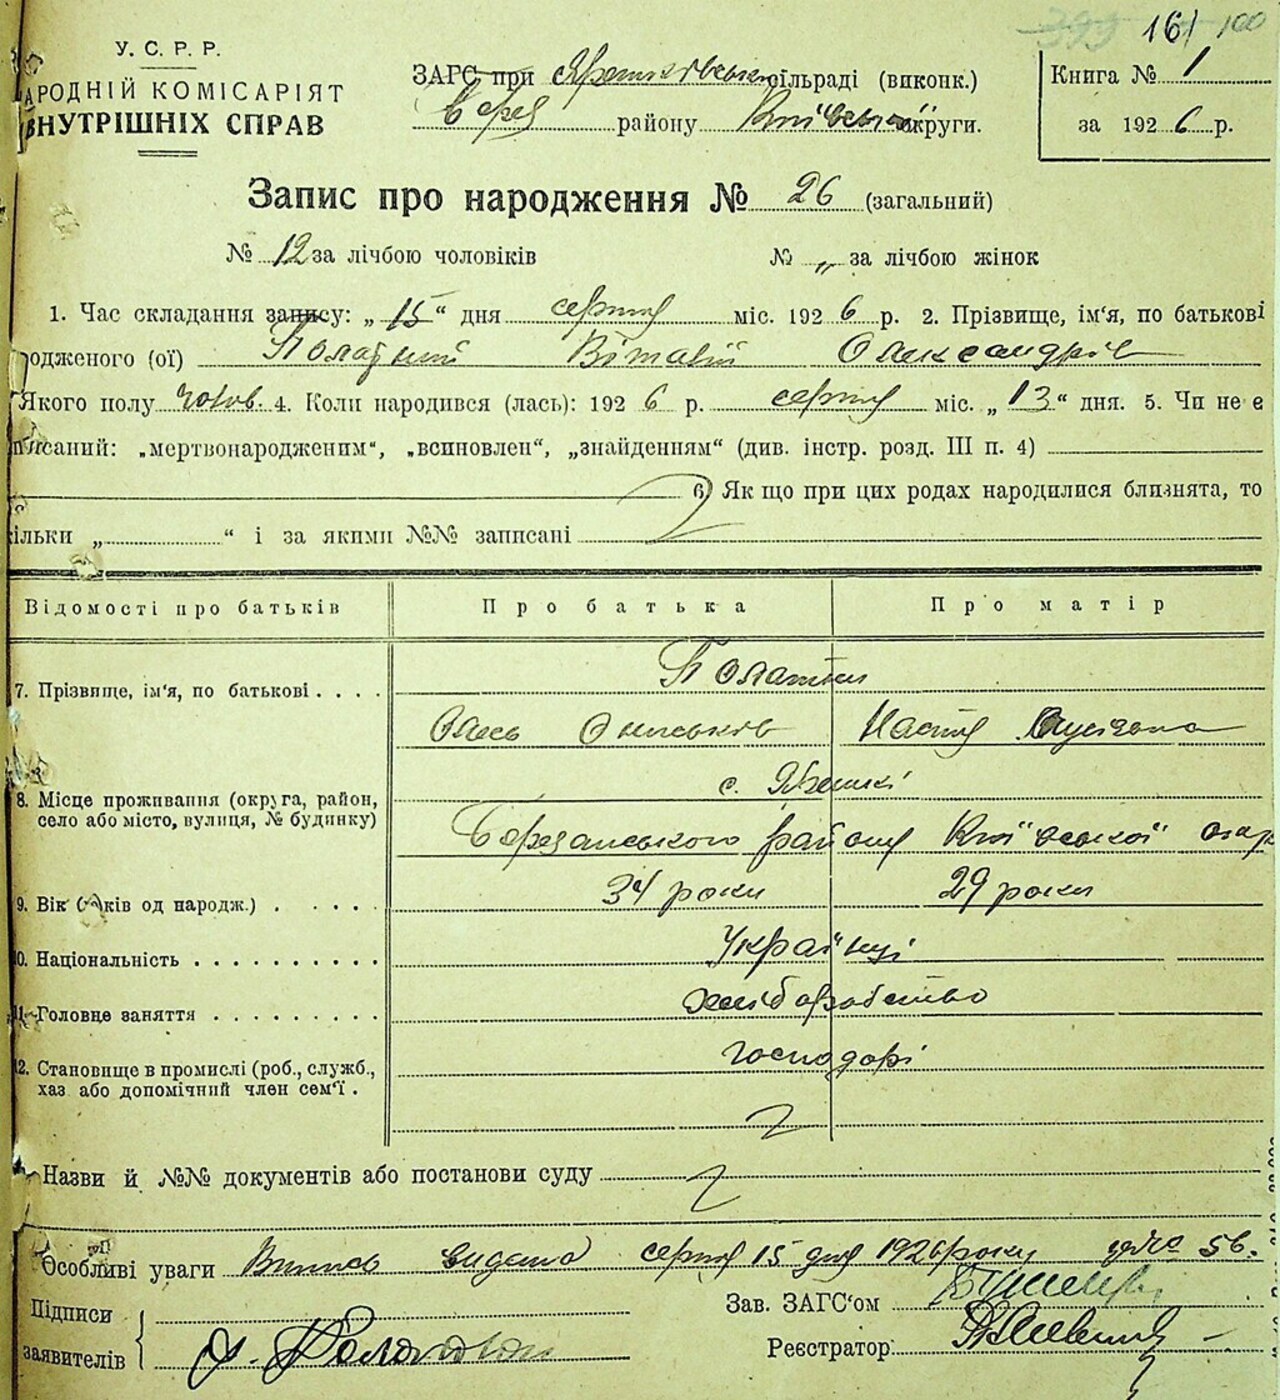 399 16/ 100
У. С. Р. Р.
АРОДНІЙ КОМІСАРІЯТ
ВНУТРІШНІХ СПРАВ
ЗАГС при сільраді (виконк.)
Берез району Київської округи.
Книга № 1
за 1926 р.
Запис про народження № 26 (загальний)
№ 12 за лічбою чоловіків № „ за лічбою жінок
1. Час складання запису: „15“ дня серпня міс. 1926 р. 2. Прізвище, ім'я, по батькові
родженого (ої) Віталій Олександрів
Якого полу чолов. 4. Коли народився (лась): 1926 р. серпня міс. „13“ дня. 5. Чи не є
писаний: „мертвонародженим“, „всиновлен“, „знайденням“ (див. інстр. розд. III п. 4)
6) Як що при цих родах народилися близнята, то
кільки „ “ і за якими №№ записані
Відомості про батьків Про батька Про матір
7. Прізвище, ім'я, по батькові . . . .
Олесь Настя
с. Ярешкі
8. Місце проживання (округа, район,
село або місто, вулиця, № будинку)
Березанського району Київської округ
9. Вік (років од народж.) . . . . . 34 роки 29 роки
10. Національність . . . . . . . . . . Українці
11. Головне заняття . . . . . . . . . хліборобство
12. Становище в промислі (роб., служб.,
хаз або допомічний член сем'ї .
господарі
Назви й №№ документів або постанови суду
Особливі уваги Випись видана серпня 15 дня 1926 року
Підписи
заявителів
Зав. ЗАГС'ом
Реєстратор: